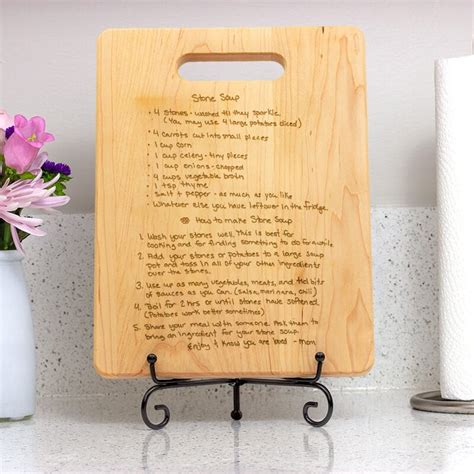 Stone Soup
• 4 stones - washed till they sparkle.
(You may use 4 large potatoes diced)
• 4 carrots cut into small pieces
• 1 cup corn
• 1 cup celery - tiny pieces
• 1 cup onions - chopped
• 4 cups vegetable broth
• 1 tsp thyme
• Salt + pepper - as much as you like
• Whatever else you have leftover in the fridge.
How to make Stone Soup
1. Wash your stones well. This is best for
cooking and for finding something to do for awhile.
2. Add your stones or potatoes to a large soup
pot and toss in all of your other ingredients
over the stones.
3. Use up as many vegetables, meats, and tid bits
of sauces as you can. (Salsa, marinara, chili)
4. Boil for 2 hrs or until stones have softened.
(Potatoes work better sometimes)
5. Share your meal with someone. Ask them to
bring an ingredient for your stone soup.
Enjoy + know you are loved - mom